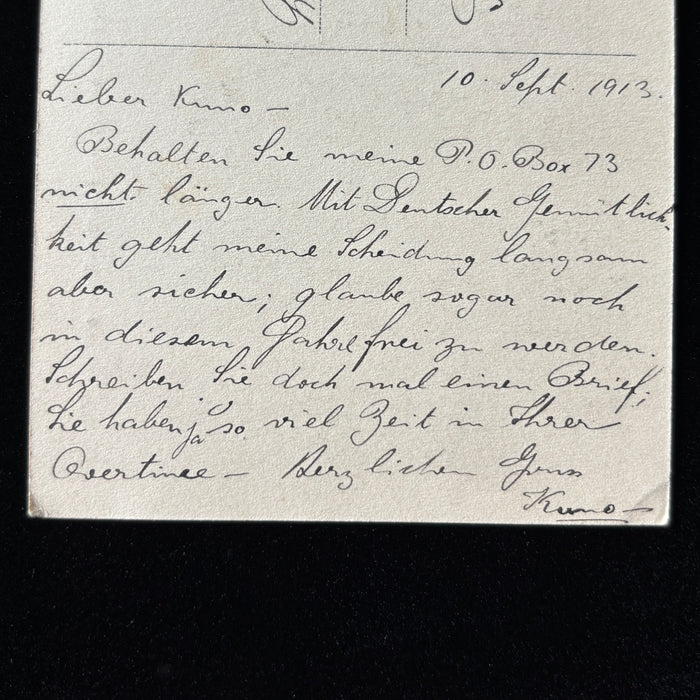 10. Sept. 1913.
Lieber Kuno –
Behalten Sie meine P.O. Box 73
nicht länger. Mit Deutscher Gemütlich-
keit geht meine Scheidung langsam
aber sicher; glaube sogar noch
in diesem Jahre frei zu werden.
Schreiben Sie doch mal einen Brief;
Sie haben ja so viel Zeit in Ihrer
Herzlichen Gruss
Kuno –